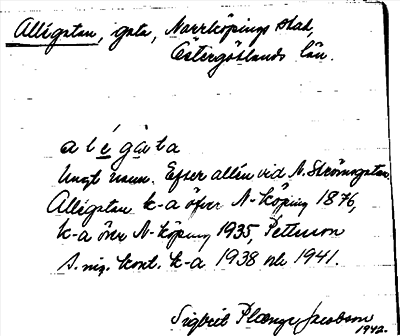 Allégatan, gata, Norrköpings stad,
Östergötlands län.
a l é g a t a
Ungt namn. Efter allén vid N. Strömsgatan.
Allégatan k-a öfver N-köping 1876,
k-a över N-köping 1935, Petterson
k-a 1938 1941.
Sigbrit Plænge Jacobson
1942.